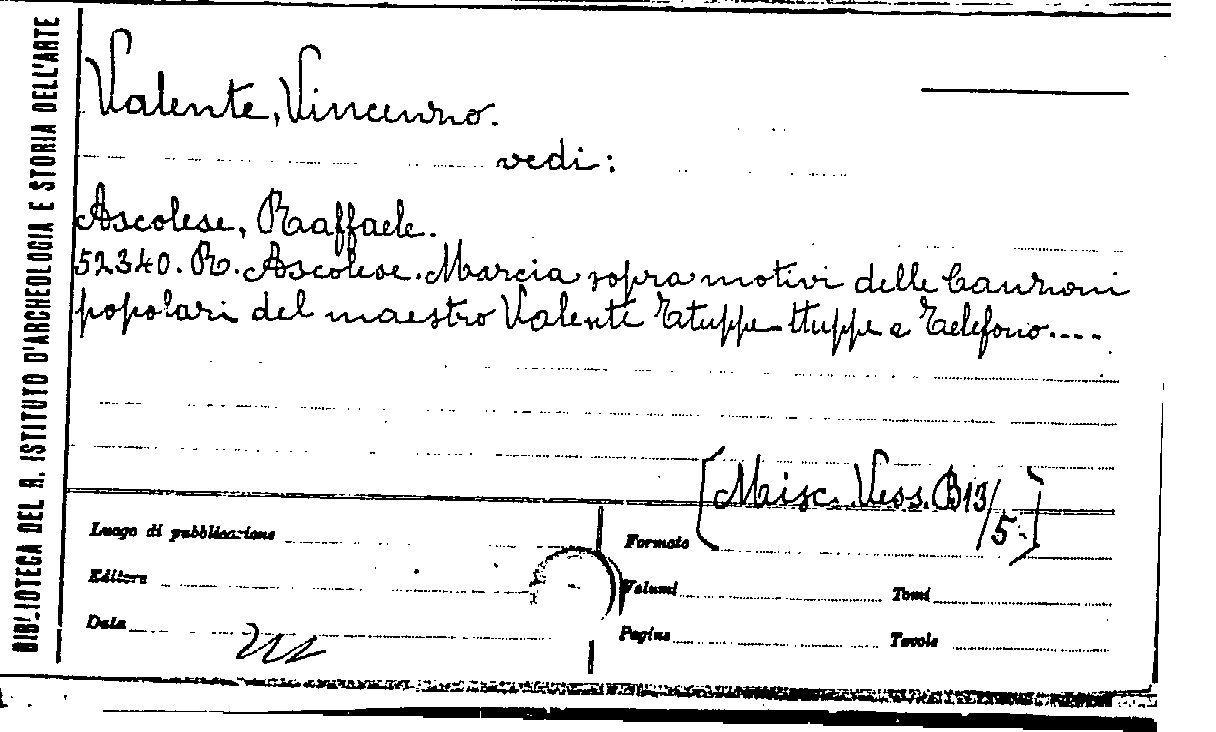 BIBLIOTECA DEL R. ISTITUTO D'ARCHEOLOGIA E STORIA DELL'ARTE
Valente, Vincenzo.
vedi:
Ascolese, Raffaele.
52340. R. Ascolese. Marcia sopra motivi delle Canzoni
popolari del maestro Valente Ttuppe-ttuppe e Telefono....
[Misc. Vess. B13/5.]
Luogo di pubblicazione
Formato
Editore
Volumi Tomi
Data
Pagine Tavole